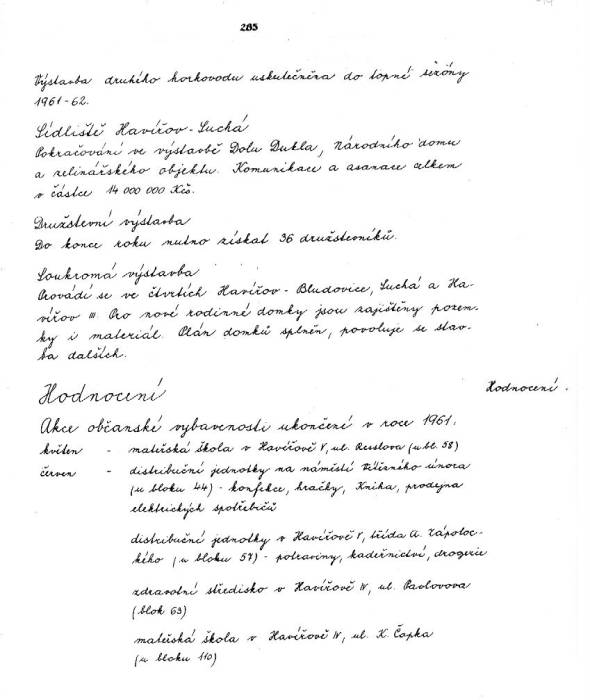 265
Výstavba druhého horkovodu uskutečněna do topné sezóny
1961-62.
Sídliště Havířov-Suchá
Pokračování ve výstavbě Dolu Dukla, Národního domu
a zelinářského objektu. Komunikace a asanace celkem
v částce 14 000 000 Kčs.
Družstevní výstavba
Do konce roku nutno získat 36 družstevníků.
Soukromá výstavba
Provádí se ve čtvrtích Havířov-Bludovice, Suchá a Ha-
vířov III. Pro nové rodinné domky jsou zajištěny pozem-
ky i materiál. Plán domků splněn, povoluje se stav-
ba dalších.
Hodnocení
Hodnocení.
Akce občanské vybavenosti ukončení v roce 1961:
květen - mateřská škola v Havířově V, ul. (u bl. 58)
červen - distribuční jednotky na náměstí Vítězného února
(u bloku 44) - konfekce, hračky, Kniha, prodejna
elektrických spotřebičů
distribuční jednotky v Havířově V, třída A. Zápotoc-
kého (u bloku 57) - potraviny, kadeřnictví, drogerie
zdravotní středisko v Havířově IV, ul. Pavlovova
(blok 63)
mateřská škola v Havířově IV, ul. K. Čapka
(u bloku 110)